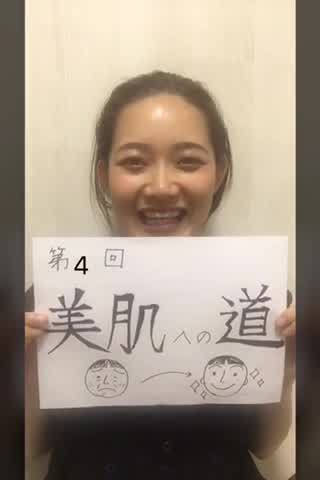 第4回
美肌への道